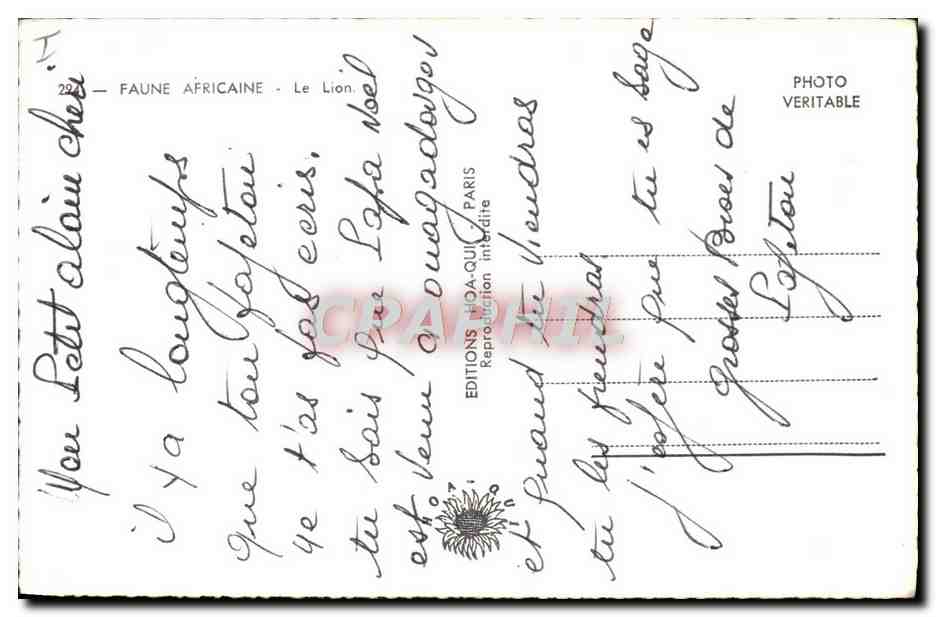 Mon Petit alain cheri
il y a longtemps
que ton papeton
ne t'as pas ecris.
tu sais que Papa Noël
est venu a ouagadougou
et quand tu viendras
tu les prendras.
j'espère que tu es sage
grosses Bises de
Papeton
FAUNE AFRICAINE - Le Lion.
PHOTO
VERITABLE
EDITIONS HOA-QUI - PARIS
Reproduction interdite
HOA-QUI
CPAPHIL